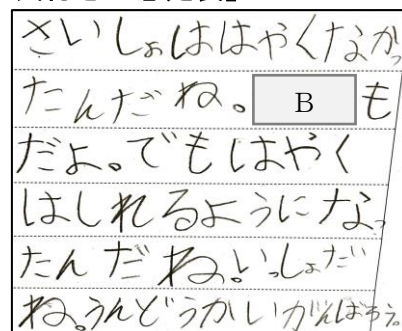 さいしょははやくなかっ
たんだね。 B も
だよ。でもはやく
はしれるようになっ
たんだね。いっしょだ
ね。うんどうかいがんばろう。